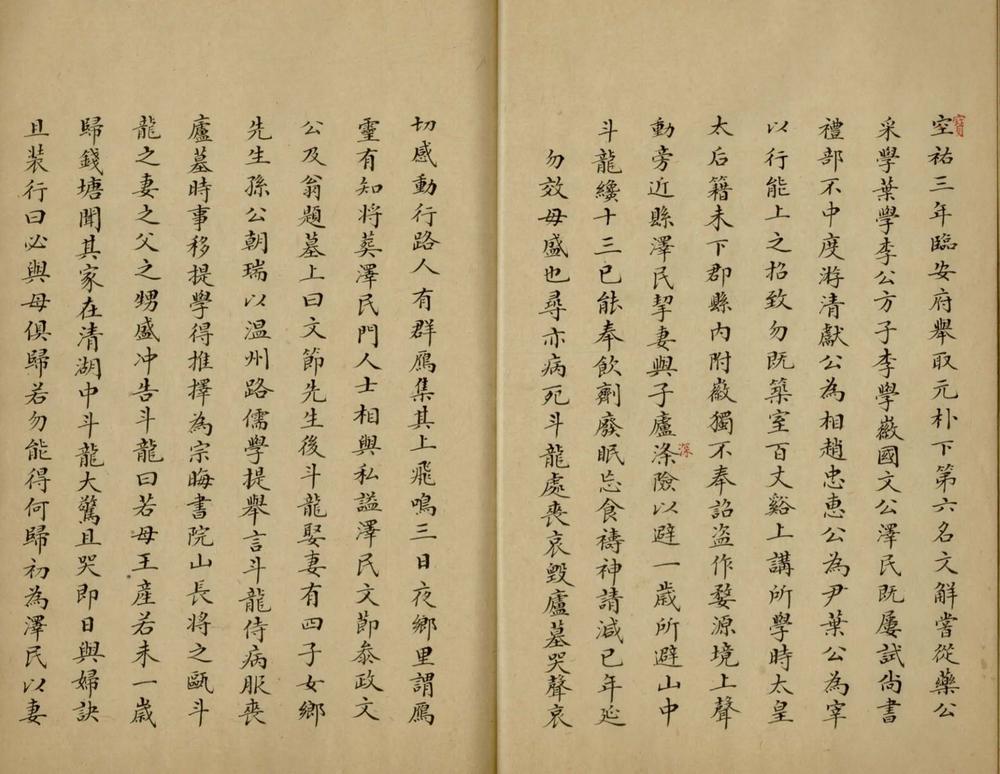 空祐三年臨安府舉取元朴下第六名文解嘗從藥公
寳
采學葉學李公方子李學徽國文公澤民既屢試尚書
禮部不中度游清獻公為相趙忠惠公為尹葉公為宰
以行能上之招致勿既築室百丈谿上講所學時太皇
太后籍未下郡縣內附徽獨不奉詔盜作婺源境上聲
動旁近縣澤民挈妻與子廬滌險以避一歲所避山中
深
斗龍纔十三已能奉飲劑廢眠忘食禱神請減已年延
勿效母盛也尋亦病死斗龍處喪哀毀廬墓哭聲哀
切感動行路人有群鴈集其上飛鳴三日夜鄉里謂鴈
靈有知將葬澤民門人士相與私謚澤民文節叅政文
公及翁題墓上曰文節先生後斗龍娶妻有四子女鄉
先生孫公朝瑞以温州路儒學提舉言斗龍侍病服喪
廬墓時事移提學得推擇為宗晦書院山長將之甌斗
龍之妻之父之甥盛冲告斗龍曰若母王産若未一歲
歸錢塘聞其家在清湖中斗龍大驚且哭即日與婦訣
且裝行曰必與母俱歸若勿能得何歸初為澤民以妻